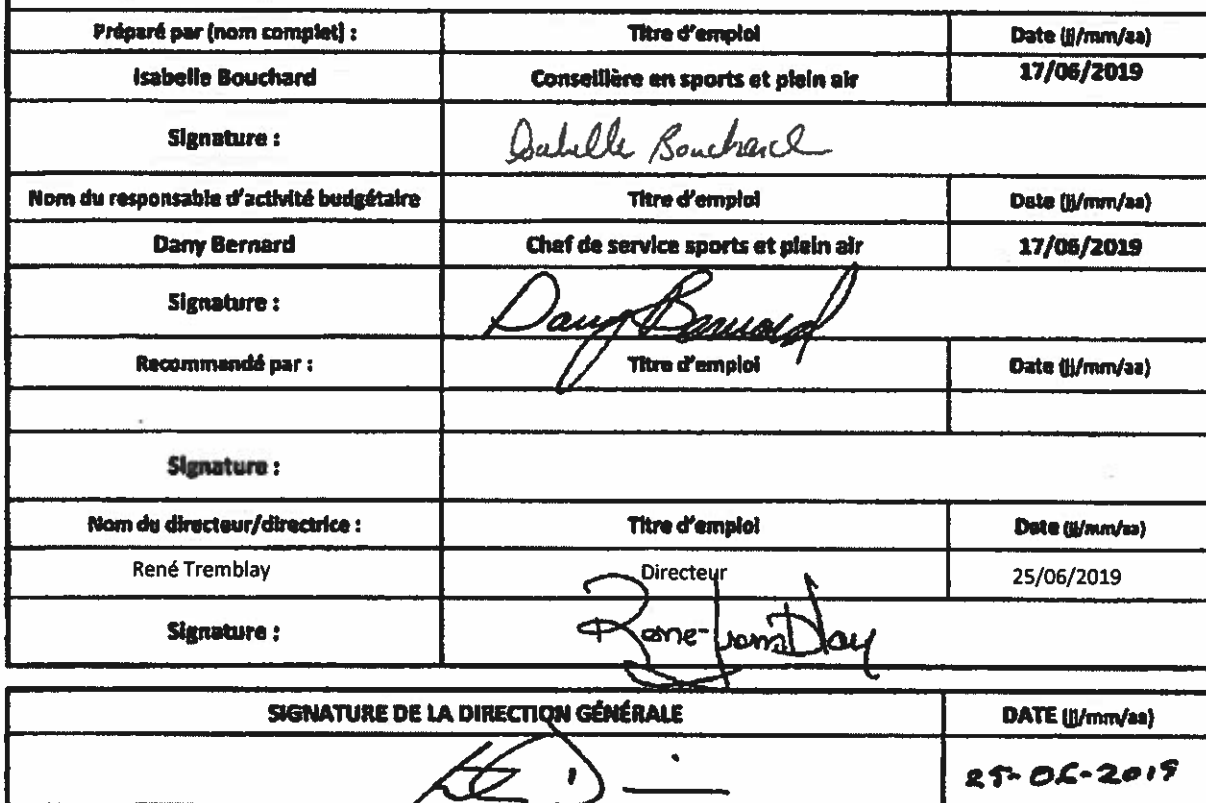 Préparé par (nom complet) : Titre d'emploi Date (jj/mm/aa)
Isabelle Bouchard Conseillère en sports et plein air 17/06/2019
Signature : Isabelle Bouchard
Nom du responsable d'activité budgétaire Titre d'emploi Date (jj/mm/aa)
Dany Bernard Chef de service sports et plein air 17/06/2019
Signature : Dany Bernard
Recommandé par : Titre d'emploi Date (jj/mm/aa)
Signature :
Nom du directeur/directrice : Titre d'emploi Date (jj/mm/aa)
René Tremblay Directeur 25/06/2019
Signature : René Tremblay
SIGNATURE DE LA DIRECTION GÉNÉRALE DATE (jj/mm/aa)